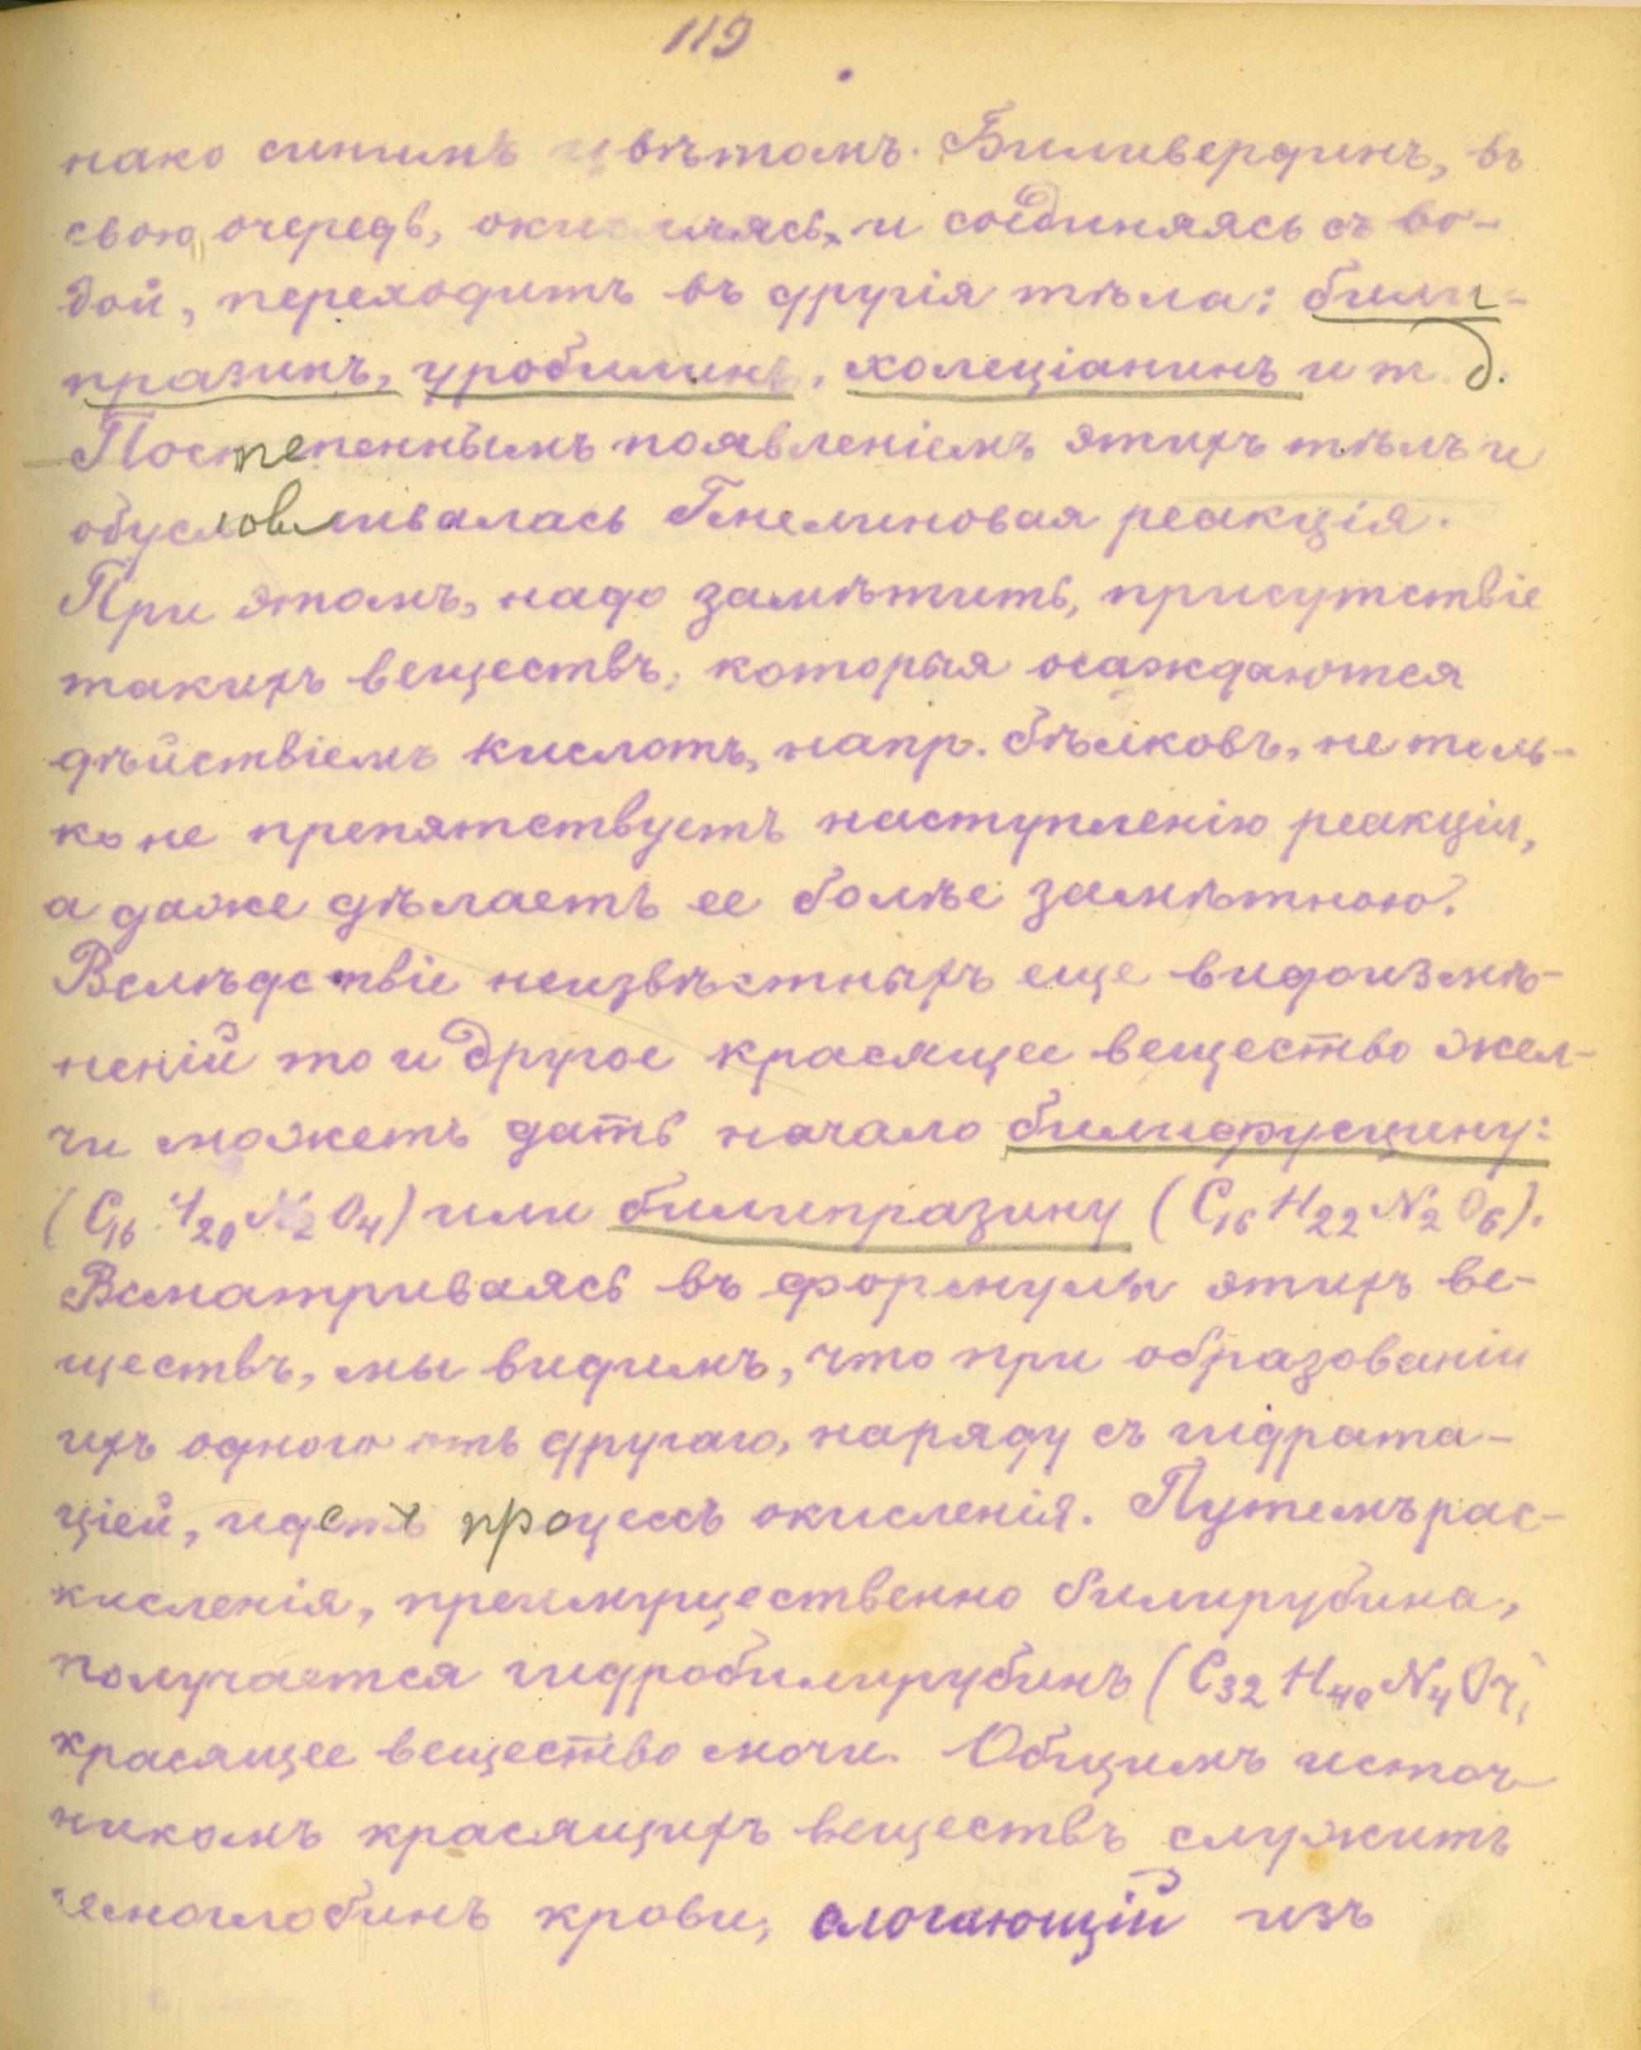 119
нако синимъ цвѣтомъ. Биливердинъ, въ
свою очередь, окисляясь, и соединяясь съ во-
дой, переходитъ въ другія тѣла: били-
празинъ, уробилинъ, холеціанинъ и т. д.
Постепеннымъ появленіемъ этихъ тѣлъ и
обусловливалась Гмелиновая реакція.
При этомъ, надо замѣтить, присутствіе
такихъ веществъ, которыя осаждаются
дѣйствіемъ кислотъ, напр. бѣлковъ, не толь-
ко не препятствуетъ наступленію реакціи,
а даже дѣлаетъ ее болѣе замѣтною.
Вслѣдствіе неизвѣстныхъ еще видоизмѣ-
неній то и другое красящее вещество жел-
чи можетъ дать начало билифусцину:
(C16 H20 N2 O4) или билипразину (C16 H22 N2 O6).
Всматриваясь въ формулы этихъ ве-
ществъ, мы видимъ, что при образованіи
ихъ одного отъ другаго, наряду съ гидрата-
ціей, идетъ процессъ окисленія. Путемъ рас-
кисленія, преимущественно билирубина,
получается гидробилирубинъ (C32 H40 N4 O7),
красящее вещество мочи. Общимъ источ-
никомъ красящихъ веществъ служитъ
гемоглобинъ крови, слогающій изъ